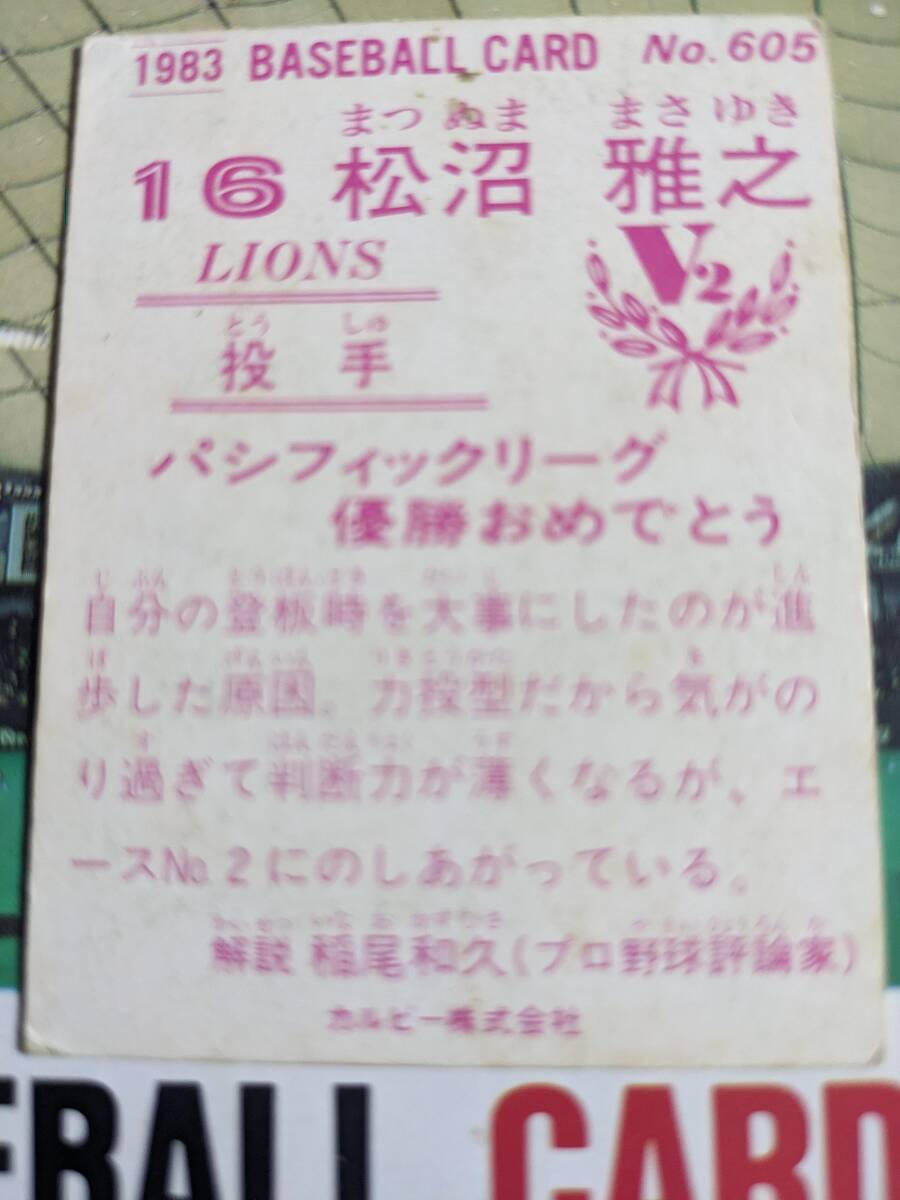 1983 BASEBALL CARD No.605
まつ ぬま まさ ゆき
16 松沼 雅之
LIONS
V2
とう しゅ
投手
パシフィックリーグ
優勝おめでとう
じ ぶん とうばん じ だい じ しん
自分の登板時を大事にしたのが進
ぽ げんいん き
歩した原因。力投型だから気がの
す はんだんりょく うす
り過ぎて判断力が薄くなるが、エ
ースNo.2にのしあがっている。
解説 稲尾和久(プロ野球評論家)
カルビー株式会社
BALL CARD